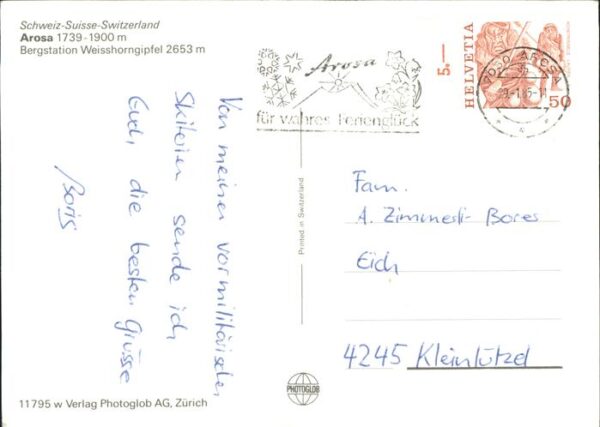 Schweiz-Suisse-Switzerland
Arosa 1739-1900 m
Bergstation Weisshorngipfel 2653 m
Von meinen vormilitärischen
Skiferien sende ich
Euch die besten Grüsse
Boris
11795 w Verlag Photoglob AG, Zürich
Printed in Switzerland
PHOTOGLOB
Arosa
für wahres Ferienglück
5.—
HELVETIA
50
7050 AROSA
Fam.
A. Zimmerli-Bores
Eich
4245 Kleinlützel